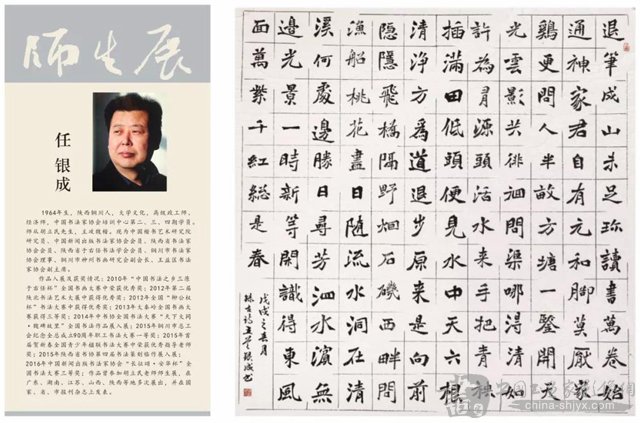 师生展
任银成
1964年生，陕西铜川人，大学文化，高级政工师，
经济师，中国书法家协会培训中心第二、三、四期学员。
师从胡立民先生，主攻魏楷。现为中国楷书艺术研究院
研究员，中国新闻出版书法家协会会员，陕西省书法家
协会会员，陕西省于右任书法学会会员，铜川市书法家
协会理事，铜川市神州书画研究会副会长，王益区书法
家协会副主席。
作品入展及获奖情况：2010年“中国书法之乡三原
于右任杯”全国书画大赛中荣获优秀奖；2012年第二届
陕北书法艺术大展中获得优秀奖；2012年全国“柳公权
杯”书法大赛中获得优秀奖；2013年文春哈全国书画大
赛获得三等奖；2014年中书协全国书法大赛“天下大同
·魏碑故里”全国书法作品展入展；2015年铜川市总工
会纪念全总成立90周年职工书法大赛一等奖；2015年首
届贺新春全国青少年书法大赛中荣获优秀指导老师
奖；2015年陕西省书协第四届书法篆刻临作展入展；
2016年中国新闻出版书法家协会“长征颂·安华杯”全
国书法大赛三等奖；作品曾参加胡立民老师师生展，在
广东、湖南、江苏、山西、陕西等地多次展出，并在国
家、省、市报刊杂志上发表。
退筆成山未足珎讀書萬卷始
通神家君自有元和脚莫厭家
鷄更問人半畝方塘一鑒開天
光雲影共徘徊問渠哪得清如
許為有源頭活水來手把青
插滿田低頭便見水中天六根
清浄方爲道退步原來是向前
隱隱飛橋隔野烟石磯西畔問
漁船桃花盡日隨流水
溪何處邊勝日尋芳泗水濵無
邊光景一時新等閑識得東風
面萬紫千紅總是春
戊戌之春月
錄古詩五首 銀成書
china-shjyx.com